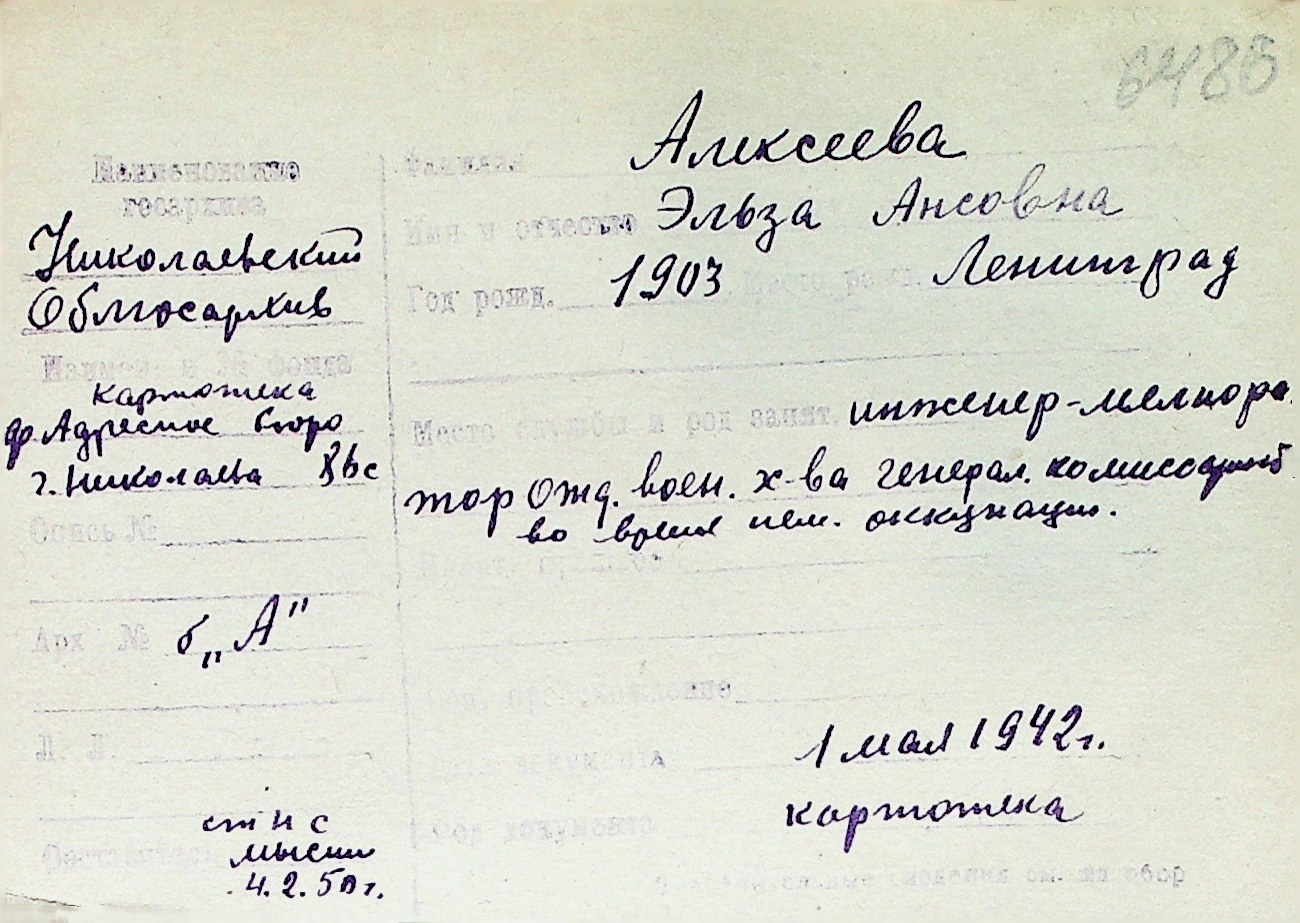 6488
Наименование
госархива
Николаевский
Облгосархив
Наимен. и № фонда
картотека
ф. Адресное бюро
г. Николаева
Опись №
Арх № б „А"
Л. Л.
стнс
4.2.50 г.
Фамилия Алексеева
Имя и отчество Эльза Ансовна
Год рожд. 1903 Место рожд. Ленинград
Место службы и род занят. инженер-мелиора
тор Отд. воен. х-ва генерал. комиссариат
во время нем. оккупации.
Соц. происхождение
Дата документа 1 мая 1942 г.
Род документа картотека